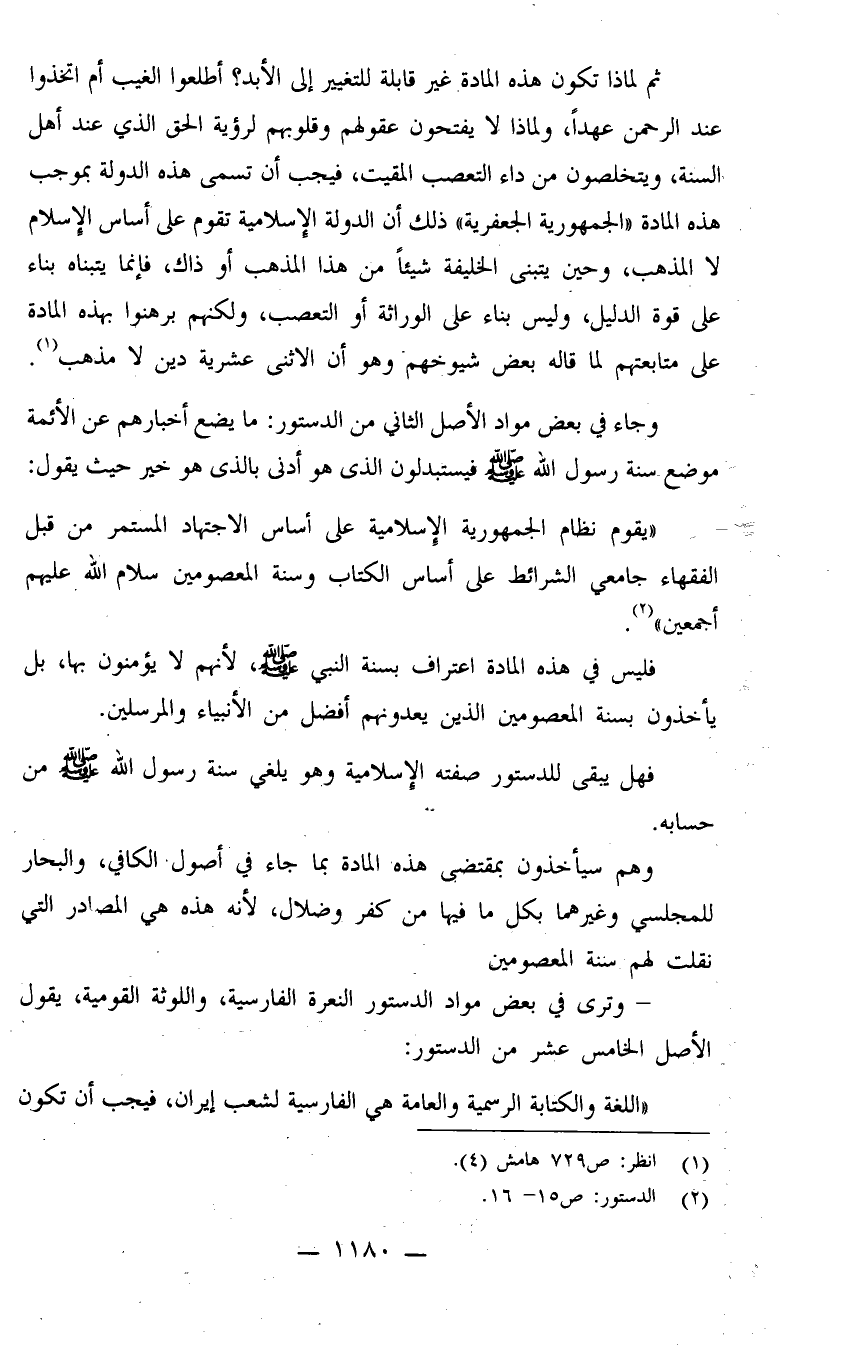 ثم لماذا تكون هذه المادة غير قابلة للتغيير إلى الأبد؟ أطلعوا الغيب أم اتخذوا
عند الرحمن عهداً، ولماذا لا يفتحون عقولهم وقلوبهم لرؤية الحق الذي عند أهل
السنة، ويتخلصون من داء التعصب المقيت، فيجب أن تسمى هذه الدولة بموجب
هذه المادة «الجمهورية الجعفرية» ذلك أن الدولة الإسلامية تقوم على أساس الإسلام
لا المذهب، وحين يتبنى الخليفة شيئاً من هذا المذهب أو ذاك، فإنما يتبناه بناء
على قوة الدليل، وليس بناء على الوراثة أو التعصب، ولكنهم برهنوا بهذه المادة
على متابعتهم لما قاله بعض شيوخهم وهو أن الاثنى عشرية دين لا مذهب(١).
وجاء في بعض مواد الأصل الثاني من الدستور: ما يضع أخبارهم عن الأئمة
موضع سنة رسول الله ﷺ فيستبدلون الذى هو أدنى بالذى هو خير حيث يقول:
«يقوم نظام الجمهورية الإسلامية على أساس الاجتهاد المستمر من قبل
الفقهاء جامعي الشرائط على أساس الكتاب وسنة المعصومين سلام الله عليهم
أجمعين»(٢).
فليس في هذه المادة اعتراف بسنة النبي ﷺ، لأنهم لا يؤمنون بها، بل
يأخذون بسنة المعصومين الذين يعدونهم أفضل من الأنبياء والمرسلين.
فهل يبقى للدستور صفته الإسلامية وهو يلغي سنة رسول الله ﷺ من
حسابه.
وهم سيأخذون بمقتضى هذه المادة بما جاء في أصول الكافي، والبحار
للمجلسي وغيرهما بكل ما فيها من كفر وضلال، لأنه هذه هي المصادر التي
نقلت لهم سنة المعصومين
– وترى في بعض مواد الدستور النعرة الفارسية، واللوثة القومية، يقول
الأصل الخامس عشر من الدستور:
«اللغة والكتابة الرسمية والعامة هي الفارسية لشعب إيران، فيجب أن تكون
(١) انظر: ص٧٢٩ هامش (٤).
(٢) الدستور: ص١٥– ١٦.
– ١١٨٠ –